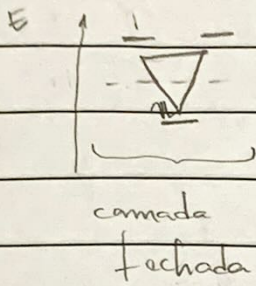 E
camada
fechada